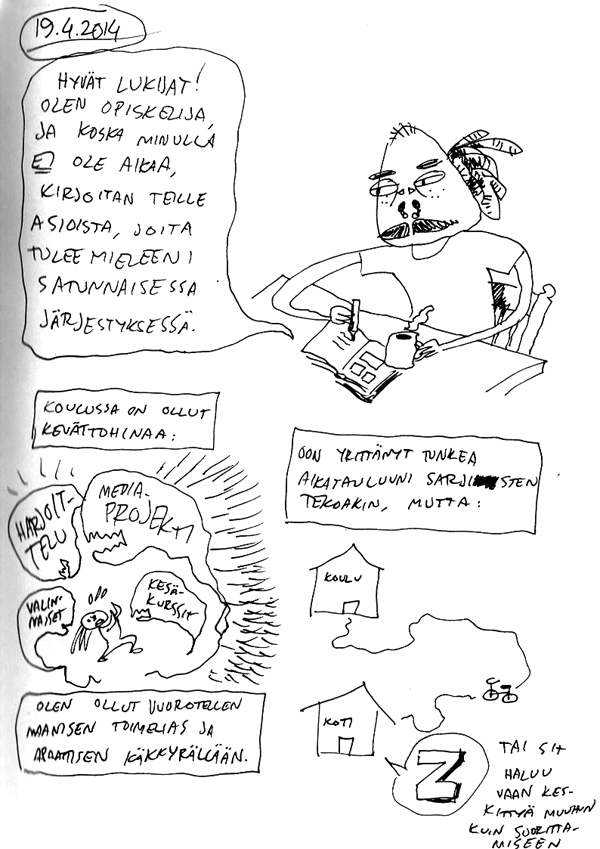 19.4.2014
HYVÄT LUKIJAT!
OLEN OPISKELIJA,
JA KOSKA MINULLA
EI OLE AIKAA,
KIRJOITAN TEILLE
ASIOISTA, JOITA
TULEE MIELEENI
SATUNNAISESSA
JÄRJESTYKSESSÄ.
KOULUSSA ON OLLUT
KEVÄTTOHINAA:
HARJOIT-
TELU
MEDIA-
PROJEKTI
VALIN-
NAISET
KESÄ-
KURSSIT
OLEN OLLUT VUOROTELLEN
MAANISEN TOIMELIAS JA
APAATTISEN KÄKKYRÄLLÄÄN.
OON YRITTÄNYT TUNKEA
AIKATAULUUNI SARJISTEN
TEKOAKIN, MUTTA:
KOULU
KOTI
Z
TAI SIT
HALUU
VAAN KES-
KITTYÄ MUUHUN
KUIN SUORITTA-
MISEEN